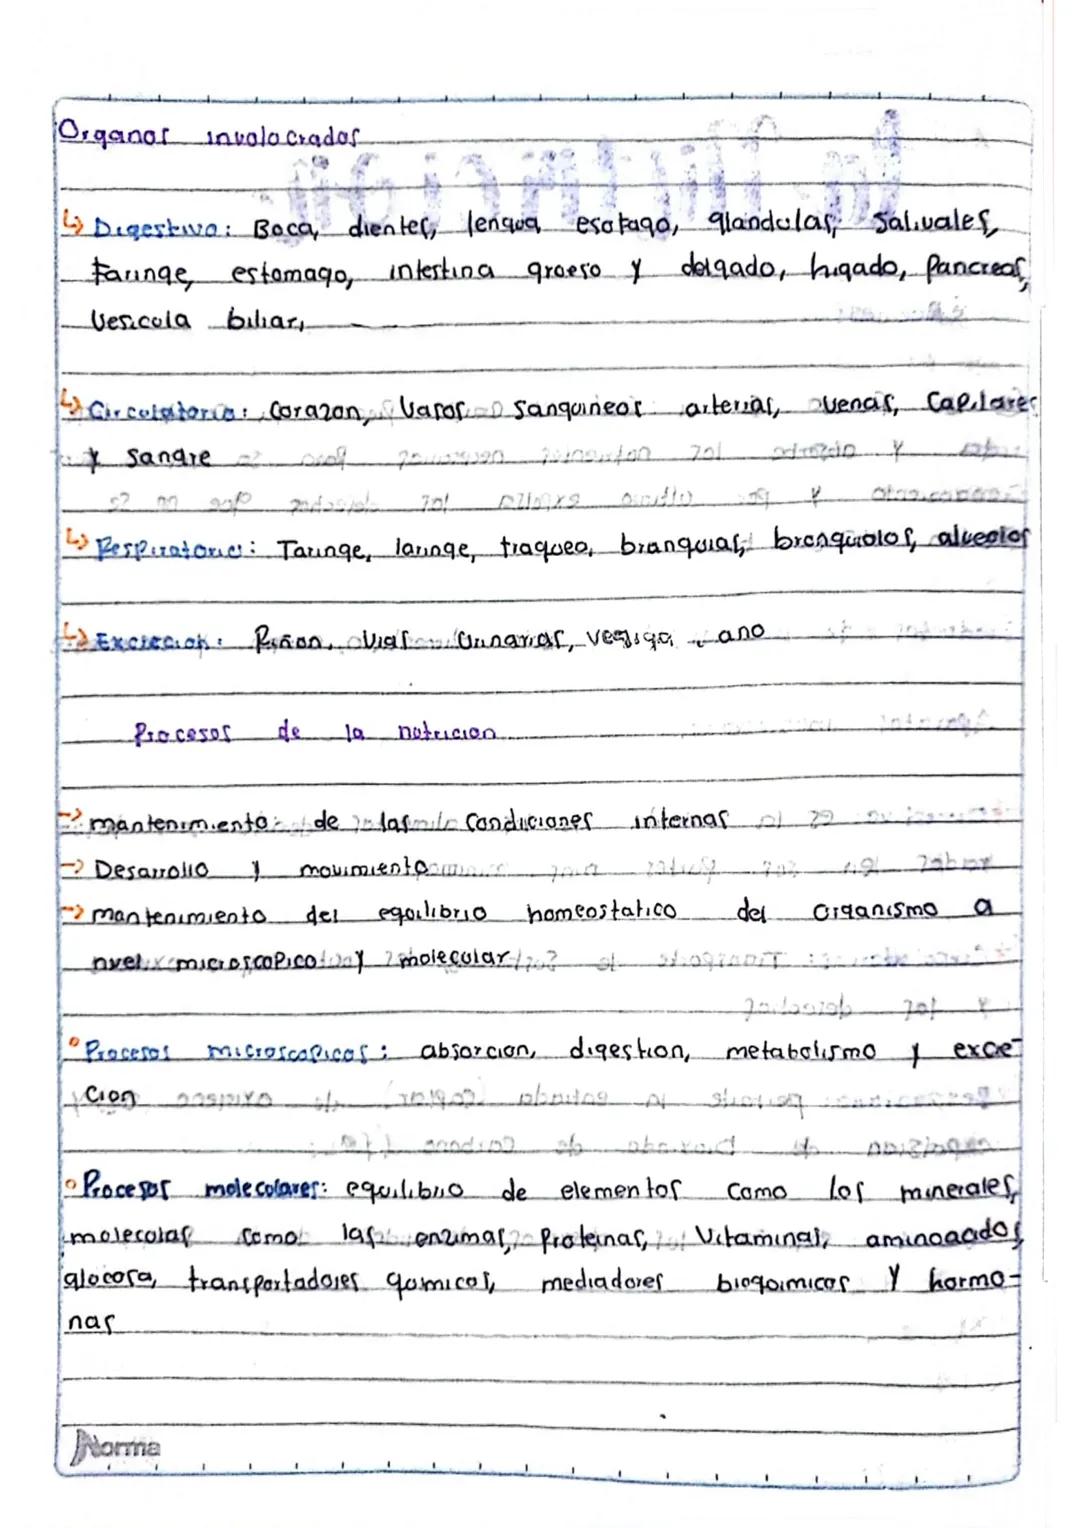 Organos involocrados
↳ Digestivo: Boca, dientes, lengua esofago, glandulas, salivales,
faringe, estomago, intestina groeso y delgado, higado, pancreas,
Vesicola biliar,
↳ Circulatorio: Corazon, Vasos Sanguineos arterias, venas, Capilares
y sangre
↳ Respiratorio: Faringe, laringe, traquea, branquias, bronquiolos, alveolos
↳ Excrecion: Riñon, Vias Urinarias, vegiga, ano
Procesos de la nutricion
→ mantenimiento de las Condiciones internas
→ Desarrollo y movimiento
→ mantenimiento del equilibrio homeostatico del organismo a
nivel microscopico y molecular
° Procesos microscopicos: absorcion, digestion, metabolismo y excre-
cion
° Procesos molecolares: equilibrio de elementos Como los minerales,
molecolas como las enzimas, Proteinas, Vitaminas, aminoacidos,
glocosa, transportadores quimicos, mediadores bioquimicos Y hormo-
nas
Norma